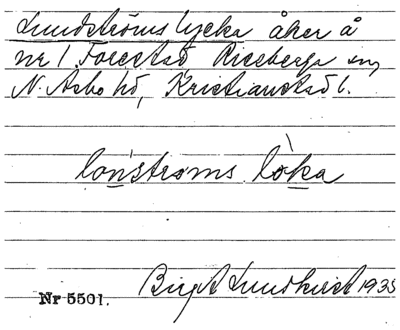 Lundströms lycka åker å
nr 1 Forestad Riseberga sn,
N. Åsbo hd, Kristianstad l.
lonstroms loka
Nr 5501.
Birgit Lundkvist 1935